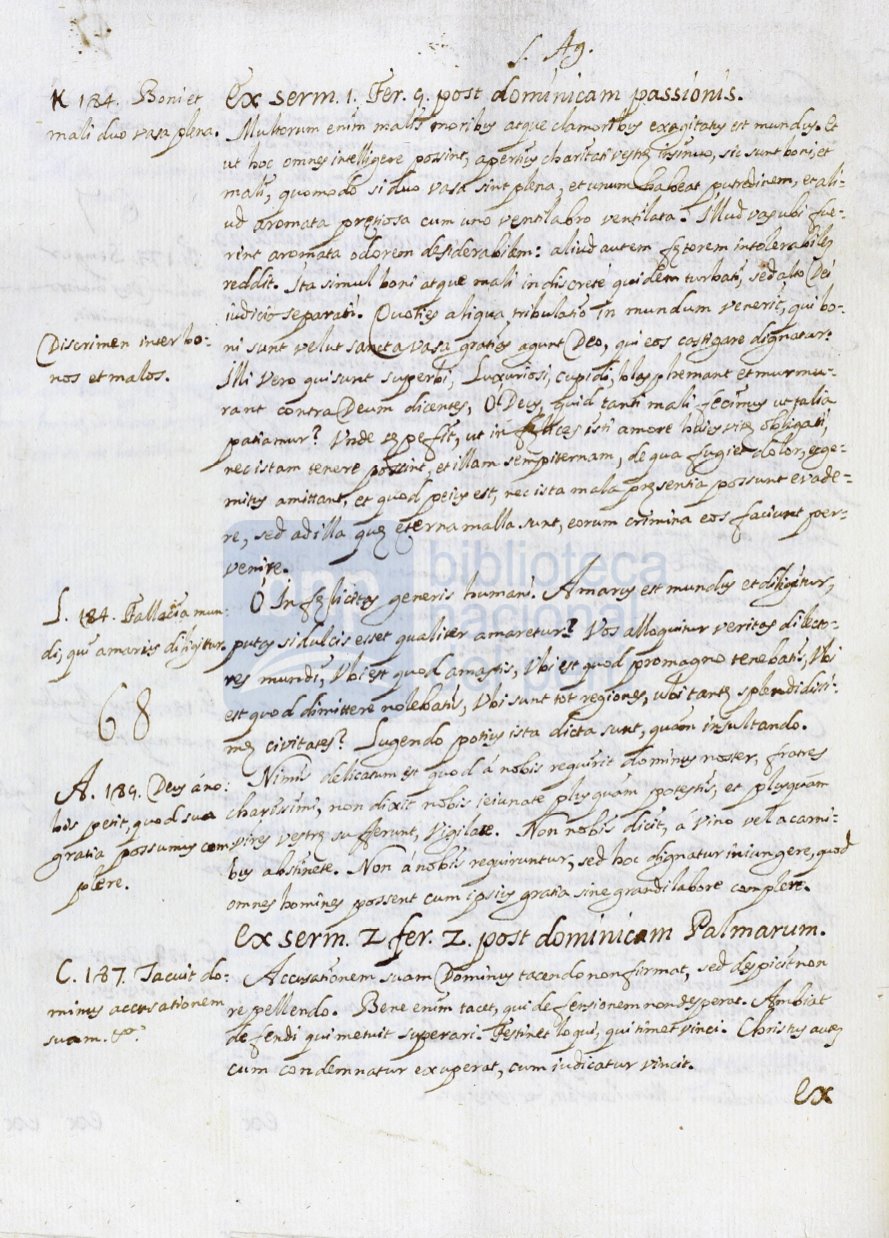 S. Ag.
K 184. Boni et
mali duo vasa plena.
Ex serm. 1. Fer. 4. post dominicam passionis.
Multorum enim malis moribus atque clamoribus exagitatus est mundus. Et
ut hoc omnes intelligere possint, apertius charitati vestrę insinuo, sic sunt boni, et
mali, quomodo si duo vasa sint plena, et unum habeat putredinem, et ali-
ud aromata pretiosa cum uno ventilabro ventilata. Illud vas ubi fue-
rint aromata odorem desiderabilem: aliud autem fętorem intolerabilem
reddit. Ita simul boni atque mali indiscretè quidem turbati, sed alto Dei
iudicio separati. Quoties aliqua tribulatio in mundum venerit, qui bo-
Discrimen inter bo-
nos et malos.
ni sunt velut sancta vasa gratias agunt Deo, qui eos castigare dignatur.
Illi vero qui sunt superbi, Luxuriosi, cupidi, blasphemant et murmu-
rant contra Deum dicentes, O Deus, quid tanti mali fecimus ut talia
patiamur? Unde sępe fit, ut infęlices isti amore huius vitę obligati,
nec istam tenere possint, et illam sempiternam, de qua fugiet dolor, et ge-
mitus amittant, et quod peius est, nec ista mala pręsentia possunt evade-
re, sed ad illa quę ęterna malla sunt, eorum crimina eos faciunt per-
venire.
L. 184. Fallacia mun-
di, qui amarus diligitur.
68
Ó Infęlicitas generis humani. Amarus est mundus et diligitur,
putas si dulcis esset qualiter amaretur? Vos alloquitur veritas dilecto-
res mundi, Ubi est quod amastis, Ubi est quod pro magno tenebatis, Ubi
est quod dimittere nolebatis, Ubi sunt tot regiones, ubi tantę splendidissi-
mę civitates? Lugendo potius ista dicta sunt, quàm insultando.
A. 189. Deus á no-
bis petit, quod sua
gratia possumus com
plere.
Nimis delicatum est quod á nobis requirit dominus noster, fratres
charissimi, non dixit nobis ieiunate plusquàm potestis, et plusquàm
vires vestrę sufferunt, vigilate. Non nobis dicit, á vino vel a carni-
bus abstinete. Non á nobis requiruntur, sed hoc dignatur iniungere, quod
omnes homines possent cum ipsius gratia sine grandi labore complere.
Ex serm. 2 fer. 2. post dominicam Palmarum.
C. 187. Tacuit do-
minus accusationem
suam.
Accusationem suam Dominus tacendo non firmat, sed despicit non
repellendo. Bene enim tacet, qui defensionem non desperat. Ambiat
defendi qui metuit superari. Festinet loqui, qui timet vinci. Christus autem
cum condemnatur exuperat, cum iudicatur vincit.
Ex
bnp biblioteca
nacional
del perú